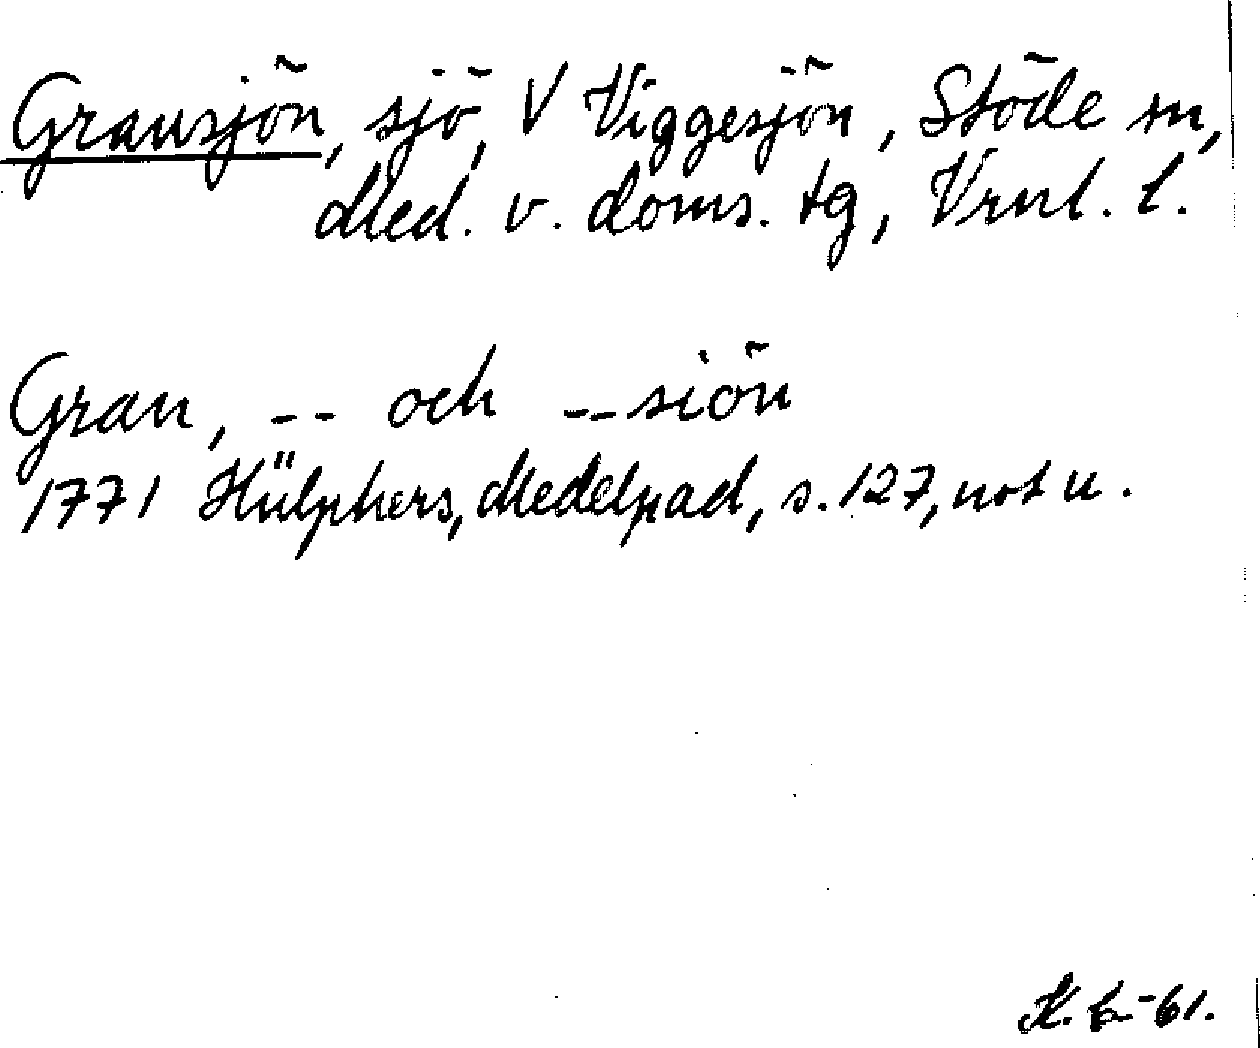 Gransjön, sjö, V Viggesjön, Stöde sn,
Med. v. doms. tg, Vrnl. l.
Gran, -- och --siön
1771 Hülphers, Medelpad, s. 127, not u.
-61.